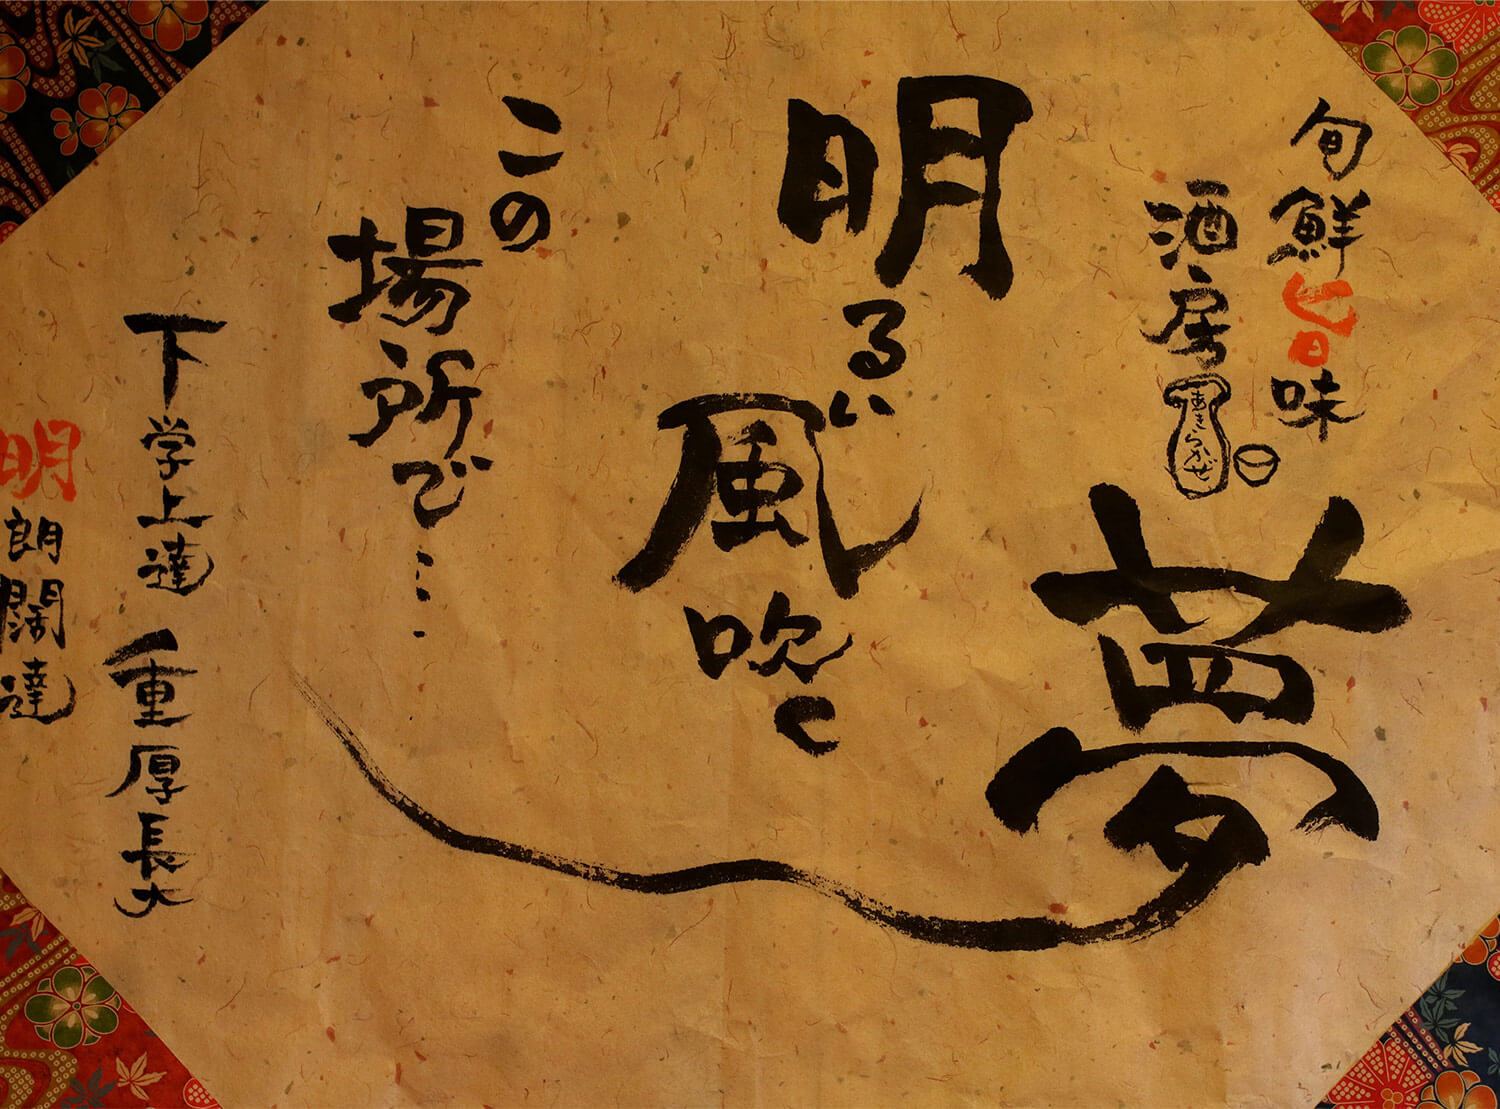 旬鮮旨味
酒房
あきらかぜ
夢
明るい
風
吹く
この
場所で…
下学上達
重厚長大
明朗闊達